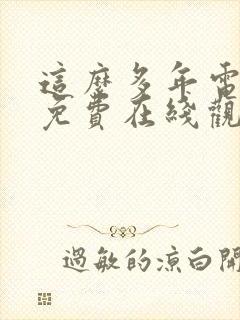 這麼多年電
免費在綫觀
過敏的涼白開